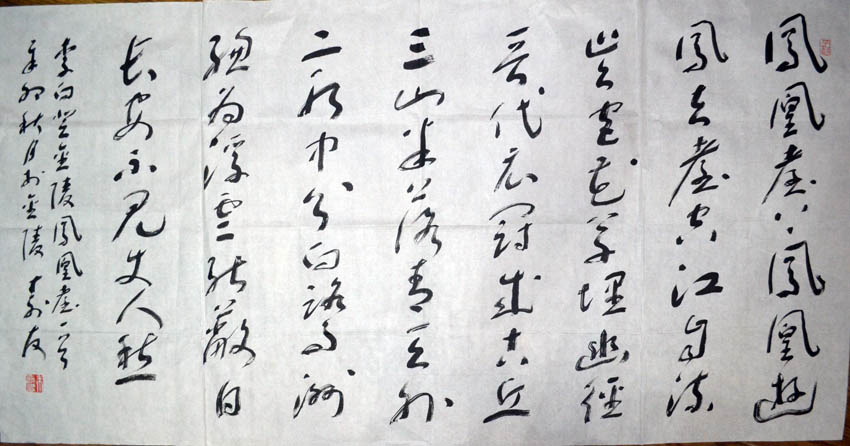 鳳凰臺上鳳凰遊
鳳去臺空江自流
吳宮花草埋幽徑
晉代衣冠成古丘
三山半落青天外
二水中分白鷺洲
總為浮雲能蔽日
長安不見使人愁
李白登金陵鳳凰臺一首
辛卯秋月於金陵